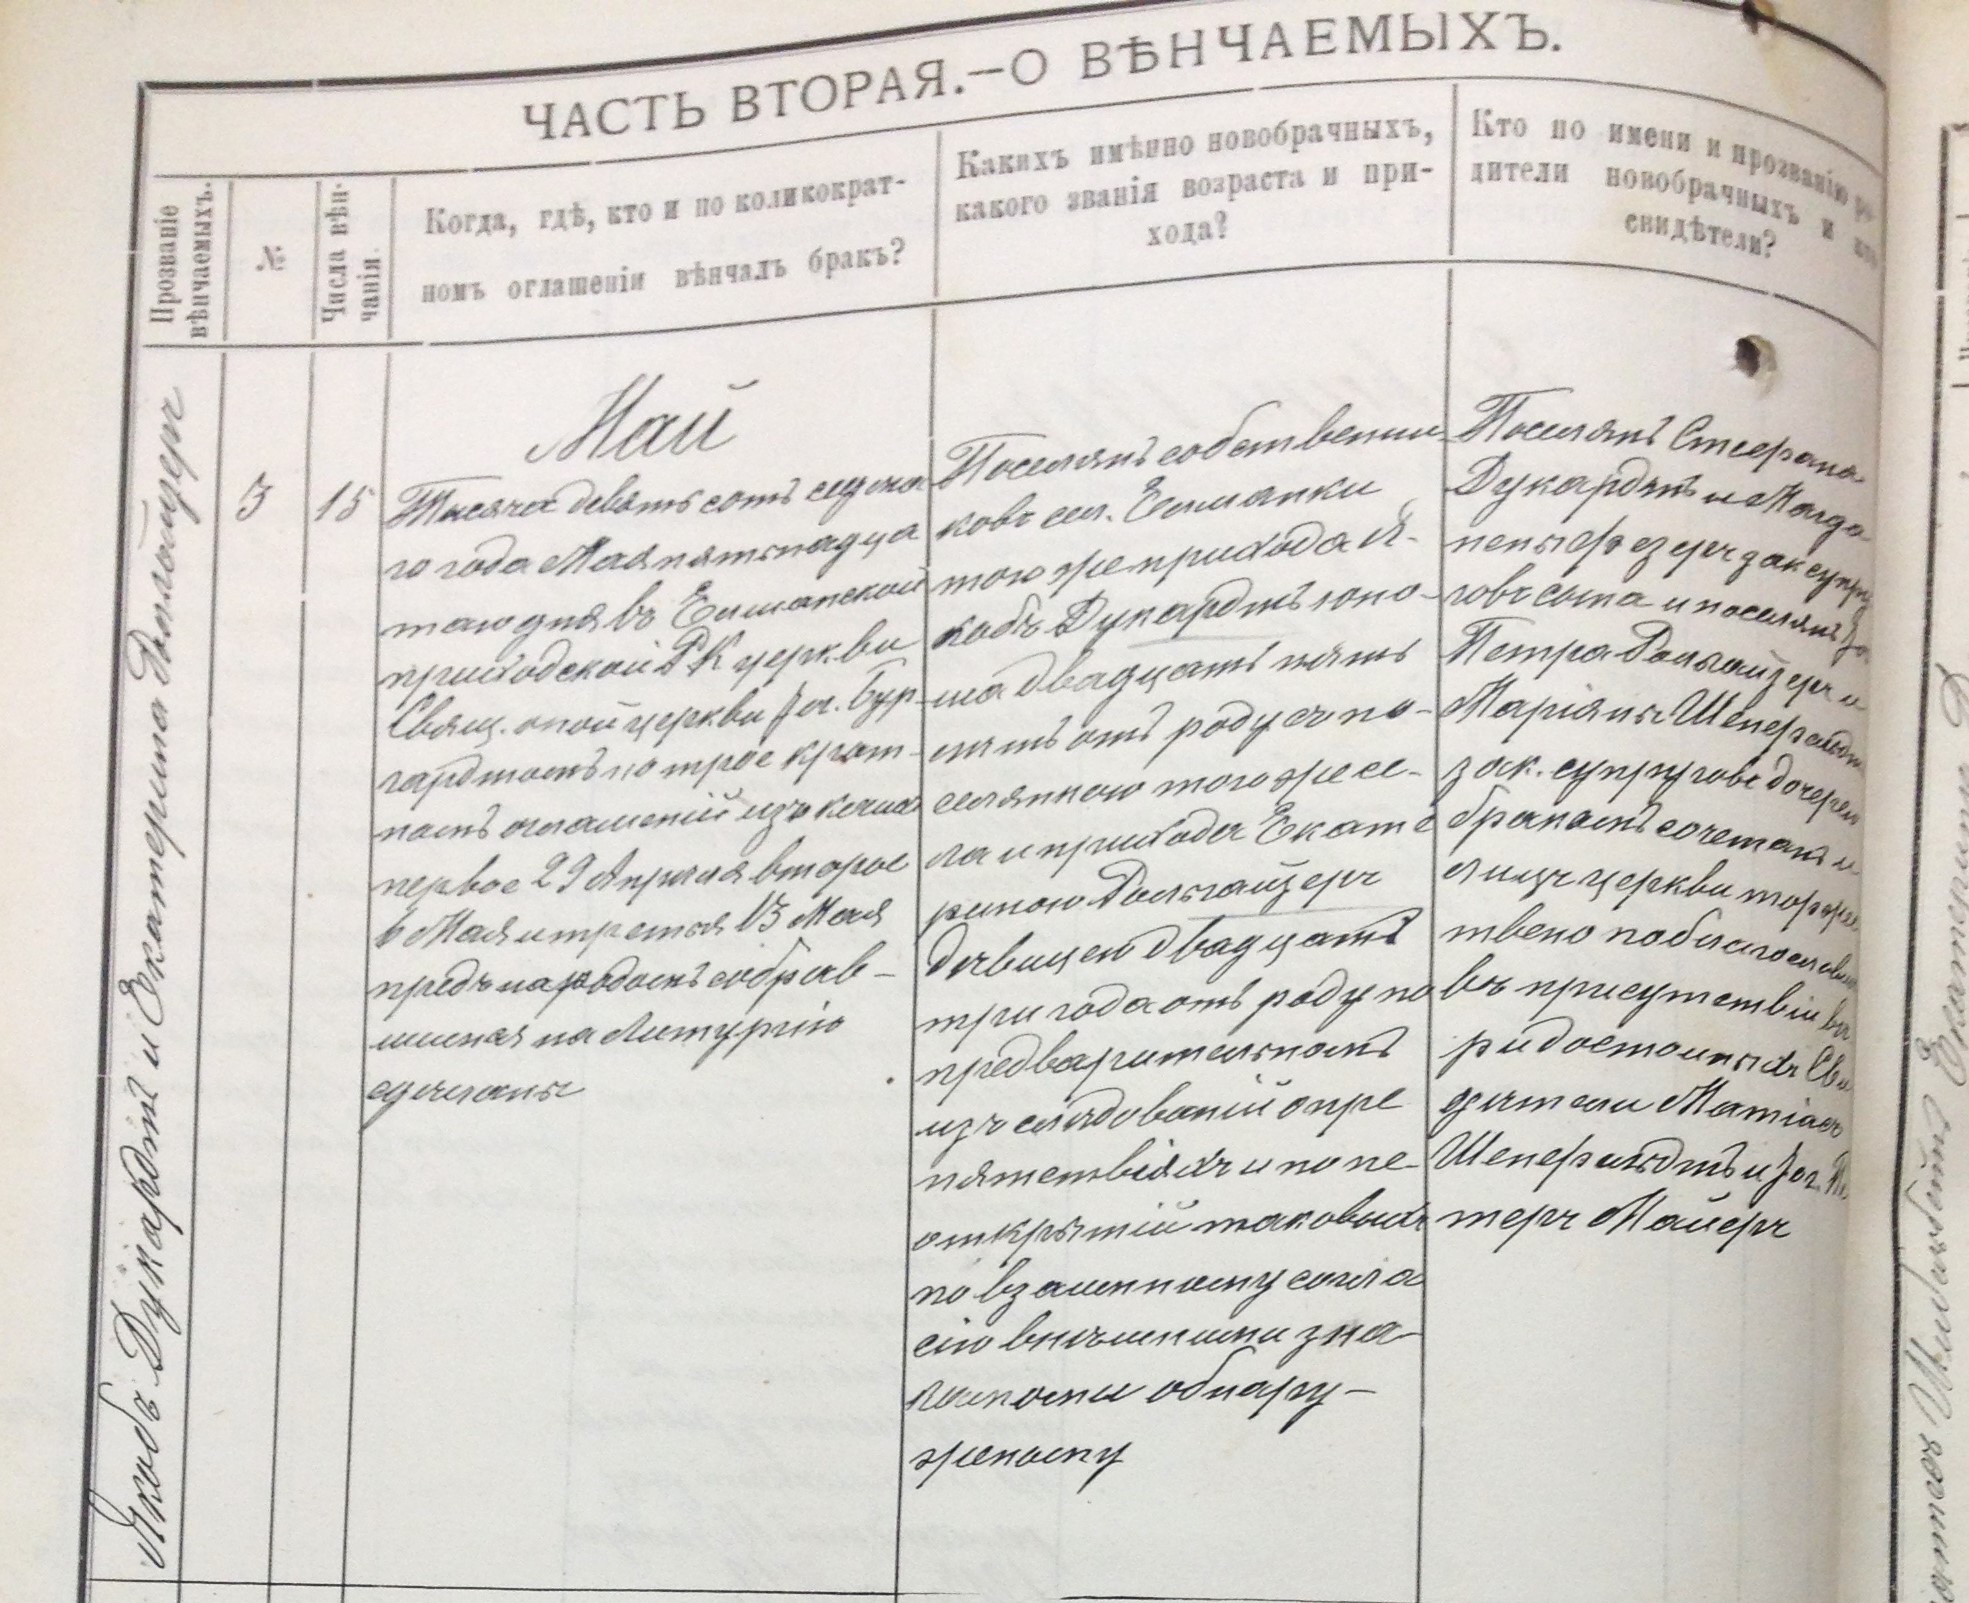 ЧАСТЬ ВТОРАЯ.—О ВѢНЧАЕМЫХЪ.
Прозваніе
вѣнчаемыхъ.
№
Числа вѣн-
чанія.
Когда, гдѣ, кто и по коликократ-
номъ оглашеніи вѣнчалъ бракъ?
Какихъ имѣнно новобрачныхъ,
какого званія возраста и при-
хода?
Кто по имени и прозванію ро-
дители новобрачныхъ и кто
свидѣтели?
Якобъ Дукардтъ и Екатерина
3
15
Май
Тысяча девять сотъ седьма
го года Мая пятьнадца
таго дня въ
приходской Р К церкви
Свящ. оной церкви Іог. Бур-
гардтомъ по трое крат-
номъ оглашеній изъ коихъ
первое 29 Апрѣля второе
6 Мая и третья 13 Мая
предъ народомъ собрав-
шимся на Литургію
сдѣланы
Поселянъ собственни
ковъ сел.
того же прихода Я-
кобъ Дукардтъ юно-
ша двадцать пять
лѣтъ отъ роду съ по-
селянкою того же се-
ла и прихода Екате
риною
дѣвицею двадцать
три года отъ роду по
предварительномъ
изъ слѣдованій о пре
пятствіяхъ и по не-
открытій таковыхъ
по взаимному согла
сію внѣшними зна-
ками обнару-
женому
Поселянъ Стефана
Дукардтъ и Магда-
лены зак супру
говъ сына и поселянъ
Петра и
Маріяны Шенфельдтъ
зак. супруговъ дочерью
бракомъ сочеталъ и
лицъ церкви торже
твено поблагословилъ
въ присутствіи вѣ
ридостойныхъ Сви
дѣтели Матіасъ
Шенфельдтъ и Іог. Пе
теръ Майеръ
Екатерина